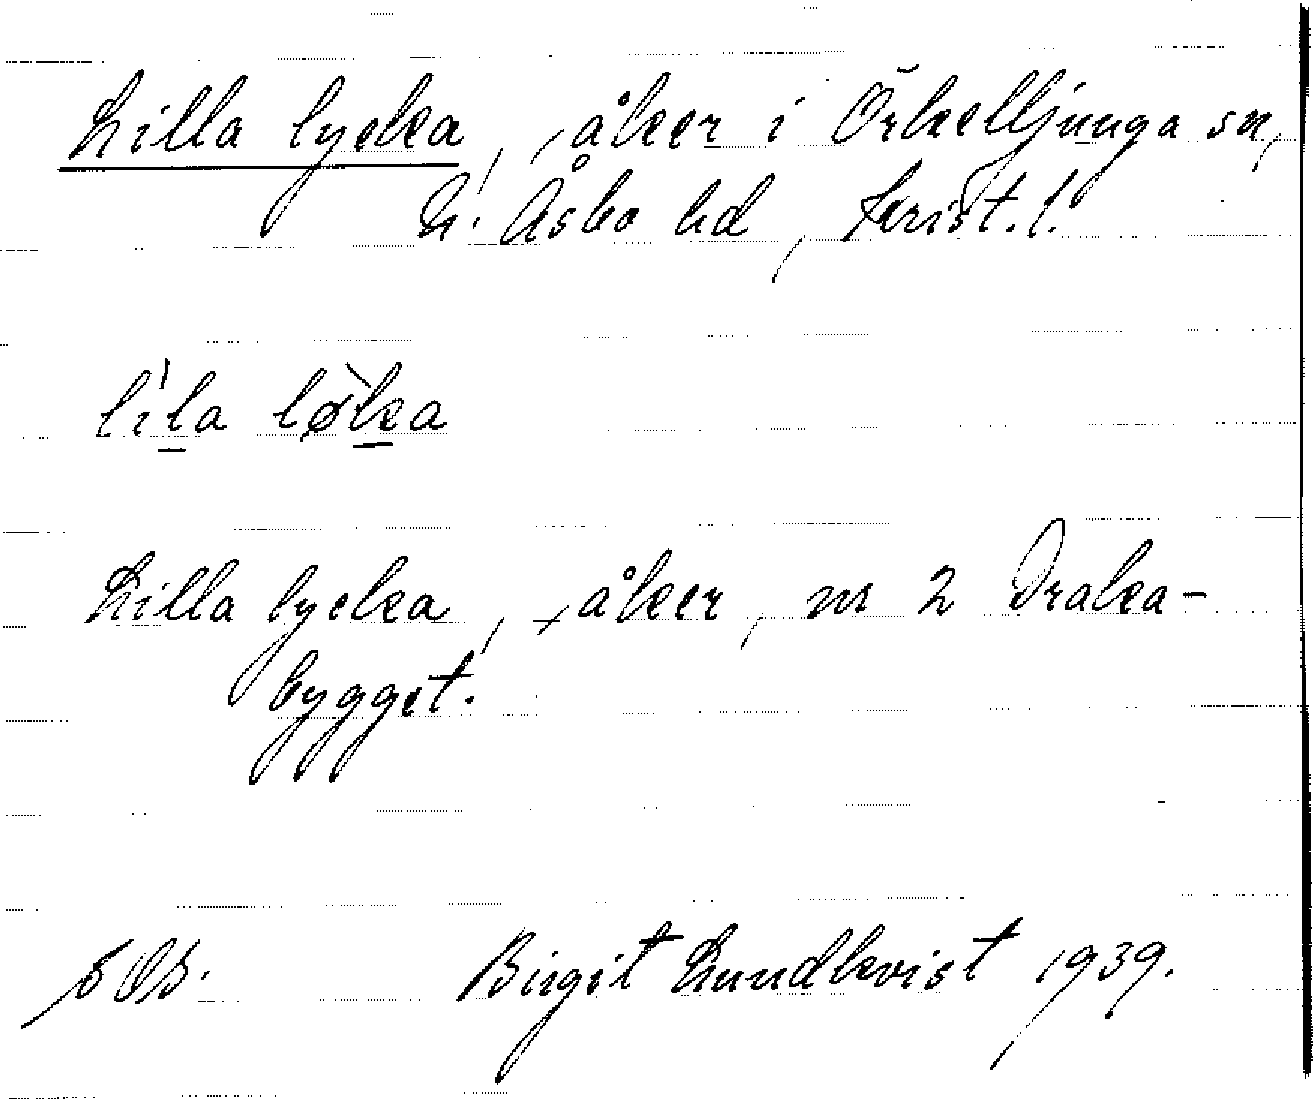 Lilla lycka, åker i Örkelljunga sn,
N. Åsbo hd, Krist. l.
lila løka
Lilla lycka, åker, nr 2 Draka-
bygget.
Birgit Lundkvist 1939.